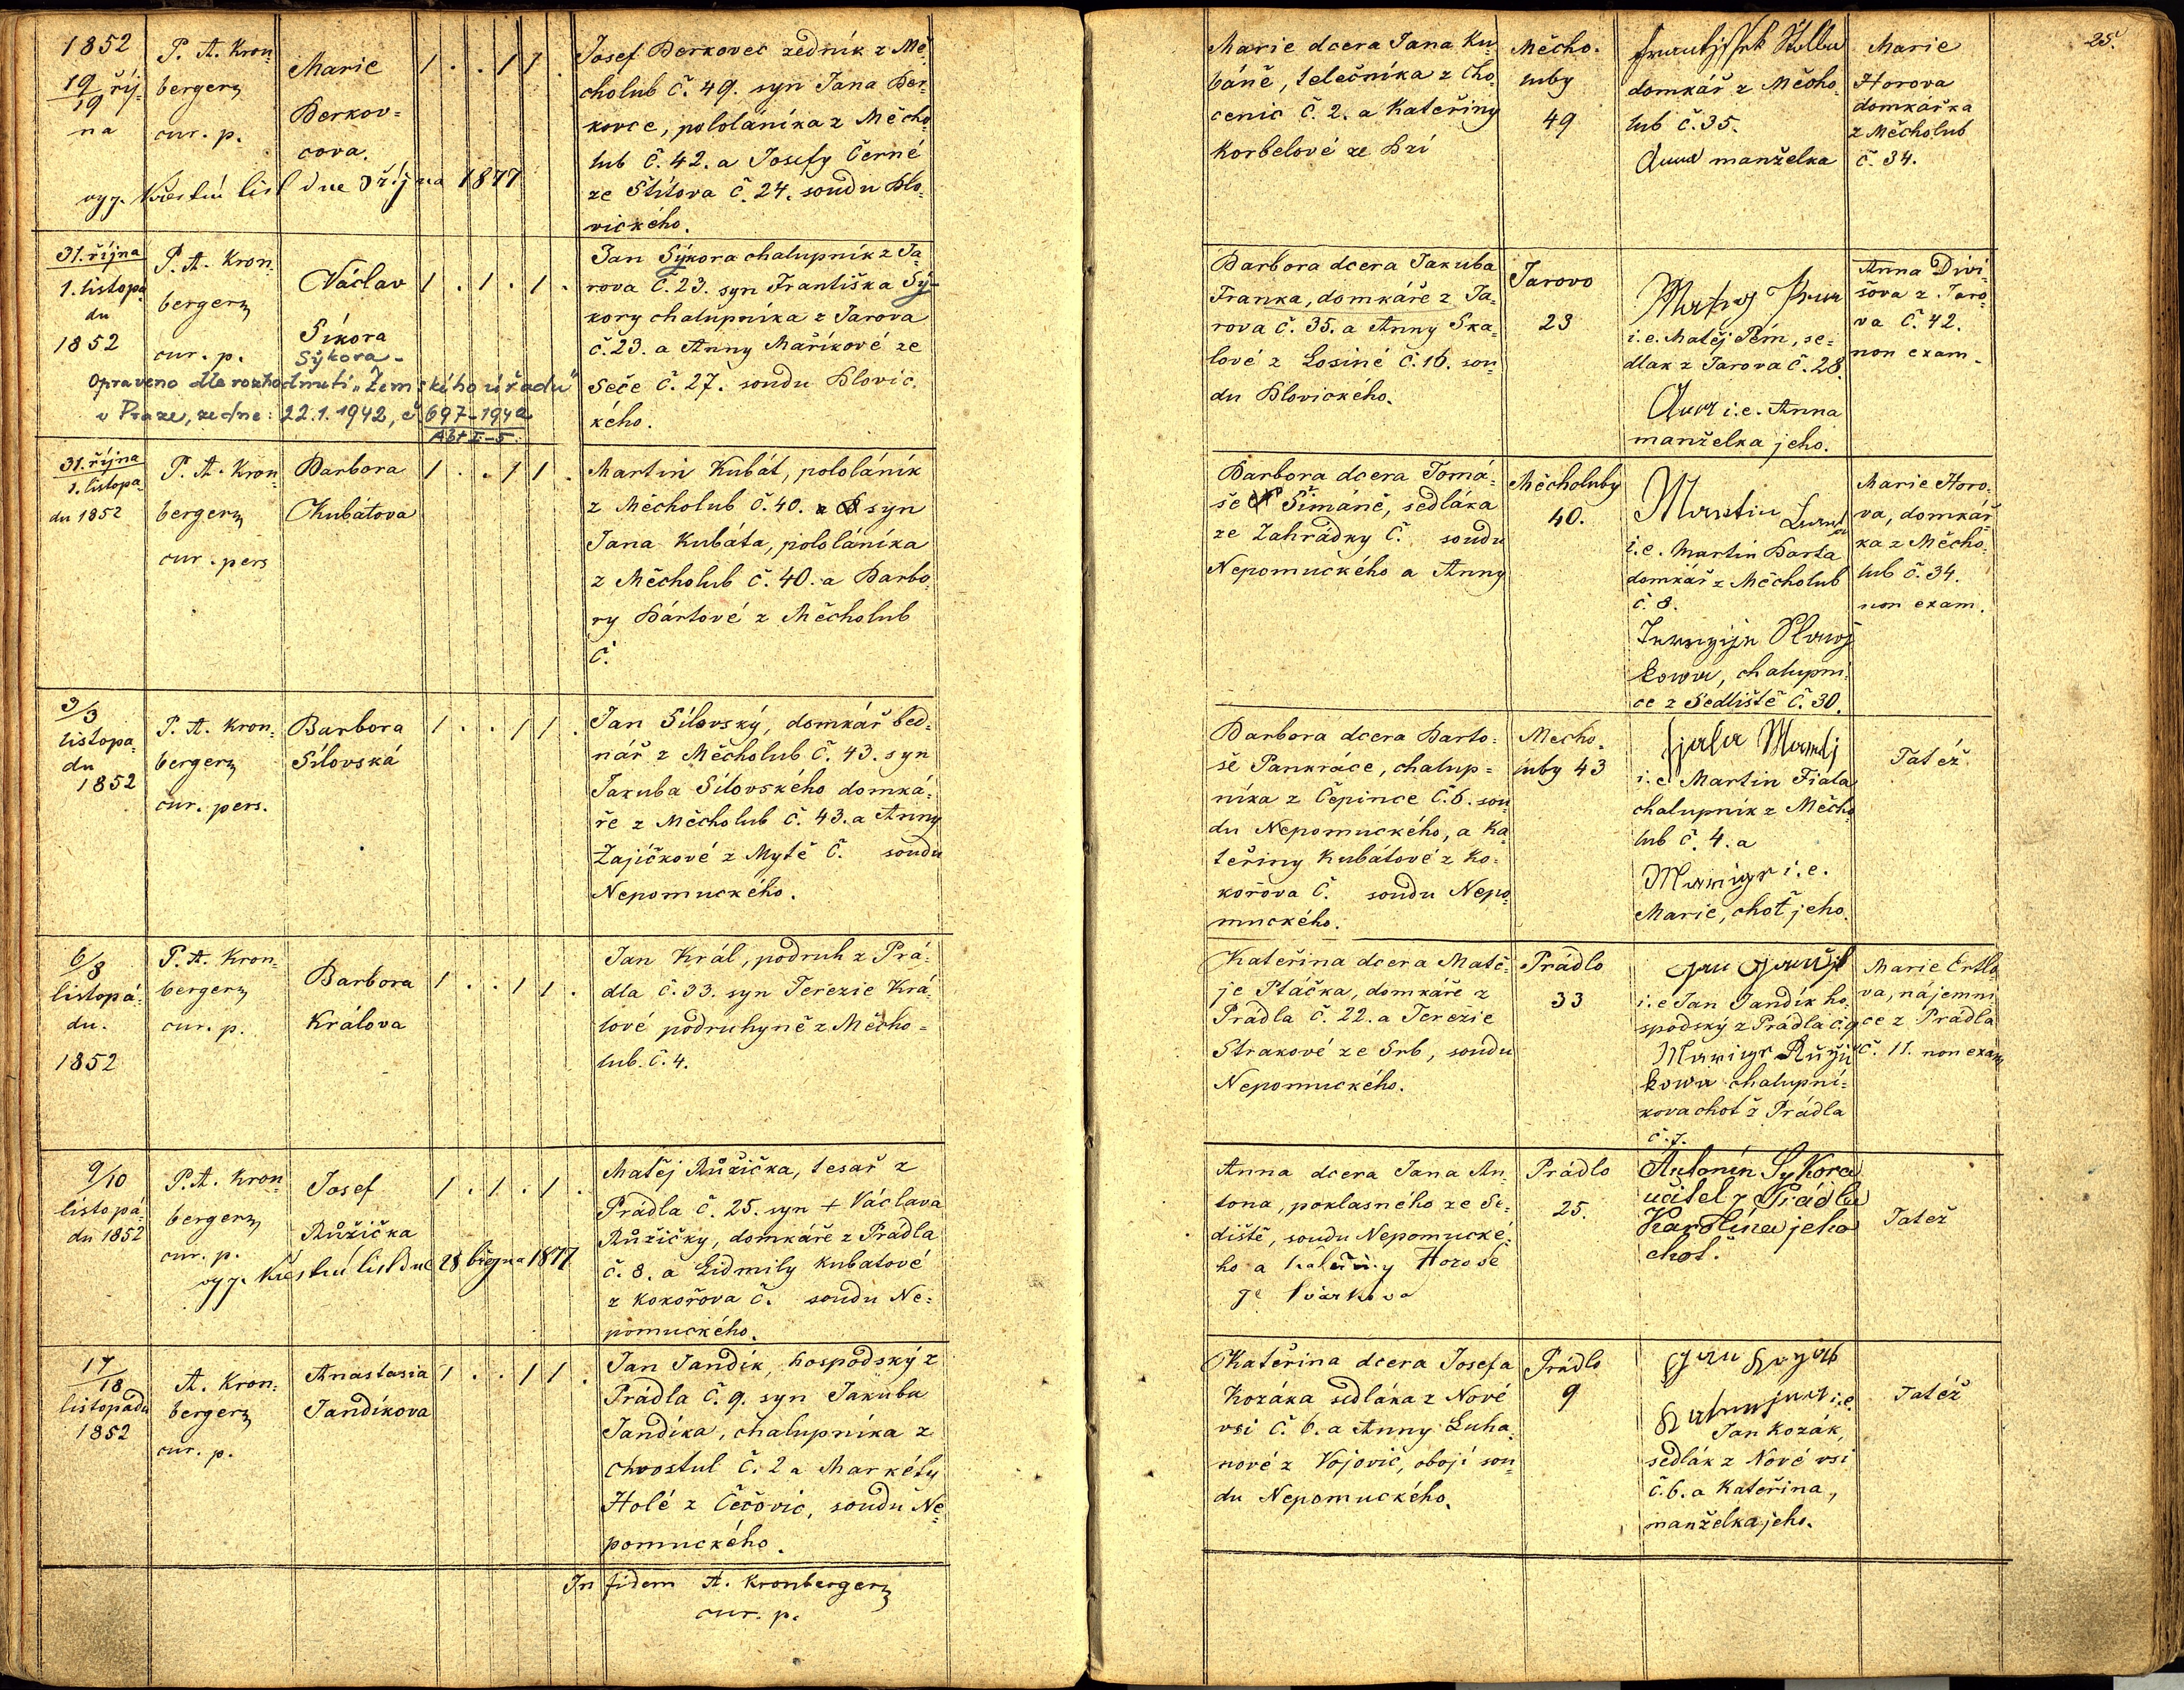 25.
1852
19/19 říj-
na
P. A. Kron-
bergerz
cur. p.
Marie
Berkov-
cova.
1 . . 1 1 .
Josef Berkovec zedník z Mě-
cholub č. 49. syn Jana Ber-
kovce, pololáníka z Měcho-
lub č. 42. a Josefy Černé
ze Štítova č. 24. soudu Blo-
vického.
vyz. Křestní list dne 3 října 1877
Marie dcera Jana Ku-
báně, telečníka z Cho-
cenic č. 2. a Kateřiny
Korbelové ze Bzí
Měcho-
luby
49
domkář z Měcho-
lub č. 35.
Anna manželka
Marie
Horova
domkářka
z Měcholub
č. 34.
31. října
1. listopa-
du
1852
P. A. Kron-
bergerz
cur. p.
Václav
Síkora
Sýkora -
1 . 1 . 1 .
Opraveno dle rozhodnutí „Zemského úřadu"
v Praze, ze dne: 22.1.1942, č 697-1942
Abt I-5
Jan Sýkora chalupník z Ja-
rova č. 23. syn Františka Sý-
kory chalupníka z Jarova
č. 23. a Anny Maříkové ze
Seče č. 27. soudu Blovic-
kého.
Barbora dcera Jakuba
Franka, domkáře z Ja-
rova č. 35. a Anny Ska-
lové z Losiné č. 16. sou-
du Blovického.
Jarovo
23
i.e. Matěj Pém, se-
dlak z Jarova č. 28.
Anna i.e. Anna
manželka jeho.
Anna Divi-
šova z Jaro-
va č. 42.
non exam.
31. října
1. listopa-
du 1852
P. A. Kron-
bergerz
cur. pers
Barbora
Kubátova
1 . . 1 1 .
Martin Kubát, pololáník
z Měcholub č. 40. syn
Jana Kubáta, pololáníka
z Měcholub č. 40. a Barbo-
ry Bártové z Měcholub
č.
Barbora dcera Tomá-
še Šimáně, sedláka
ze Zahrádky č. soudu
Nepomuckého a Anny
Měcholuby
40.
Martin
i.e. Martin Barta
domkář z Měcholub
č. 8.
kowa, chalupni-
ce z Sedliště č. 30.
Marie Horo-
va, domkář-
ka z Měcho-
lub č. 34.
non exam.
3/3
listopa-
du
1852
P. A. Kron-
bergerz
cur. pers.
Barbora
Sílovská
1 . . 1 1 .
Jan Sílovský, domkář bed-
nář z Měcholub č. 43. syn
Jakuba Sílovského domká-
ře z Měcholub č. 43. a Anny
Zajíčkové z Mytě č. soudu
Nepomuckého.
Barbora dcera Barto-
še Pankráce, chalup-
níka z Čepince č. 6. sou-
du Nepomuckého, a Ka-
teřiny Kubátové z Ko-
kořova č. soudu Nepo-
muckého.
Mecho-
luby 43
fjala Martěj
i.e. Martin Fiala
chalupník z Měcho-
lub č. 4. a
Marige i.e.
Marie, choť jeho.
Tatéž
6/8
listopá-
du.
1852
P. A. Kron-
bergerz
cur. p.
Barbora
Králova
1 . . 1 1 .
Jan Král, podruh z Prá-
dla č. 33. syn Terezie Krá-
lové podruhyně z Měcho-
lub. č. 4.
Kateřina dcera Matě-
je Ptáčka, domkáře z
Prádla č. 22. a Terezie
Strakové ze Srb, soudu
Nepomuckého.
Prádlo
33
i.e Jan Jandík ho-
spodský z Prádla č. 9
Marige Růžič
kowa chalupní-
kova choť z Prádla
č. 7.
Marie Ertlo-
va, nájemni-
ce z Prádla
č. 11. non exam
9/10
listopá-
du 1852
P. A. Kron-
bergerz
cur. p.
Josef
Růžička
1 . 1 . 1 .
vyz. Křestní list dne 28 1877
Matěj Růžička, tesař z
Prádla č. 25. syn + Václava
Růžičky, domkáře z Prádla
č. 8. a Lidmily Kubatové
z Kokořova č. soudu Ne-
pomuckého.
Anna dcera Jana An-
tona, poklasného ze Se-
diště, soudu Nepomucké-
ho a Kateřiny
Prádlo
25.
Antonín Sykora
učitel z Prádla
Karolína jeho
choť.
Tatéž
17/18
listopadu
1852
A. Kron-
bergerz
cur. p.
Anastasia
Jandíkova
1 . . 1 1 .
Jan Jandík, hospodský z
Prádla č. 9. syn Jakuba
Jandíka, chalupníka z
Chvostul č. 2 a Markéty
Holé z Čečovic, soudu Ne-
pomuckého.
Kateřina dcera Josefa
Kozáka sedláka z Nové
vsi č. 6. a Anny Luha-
nové z Vojovic, obojí sou-
du Nepomuckého.
Prádlo
9
Jan Kozák,
sedlák z Nové vsi
č. 6. a Kateřina,
manželka jeho.
Tatéž
In fidem A. Kronbergerz
cur. p.